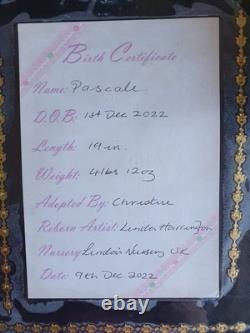 Birth Certificate
Name: Pascale
D.O.B: 1st Dec 2022
Length: 19 in.
Weight: 4lbs 12oz
Adopted By: Christine
Reborn Artist: Linda Harrington
Nursery Linda's Nursery UK
Date: 9th Dec 2022
ebay